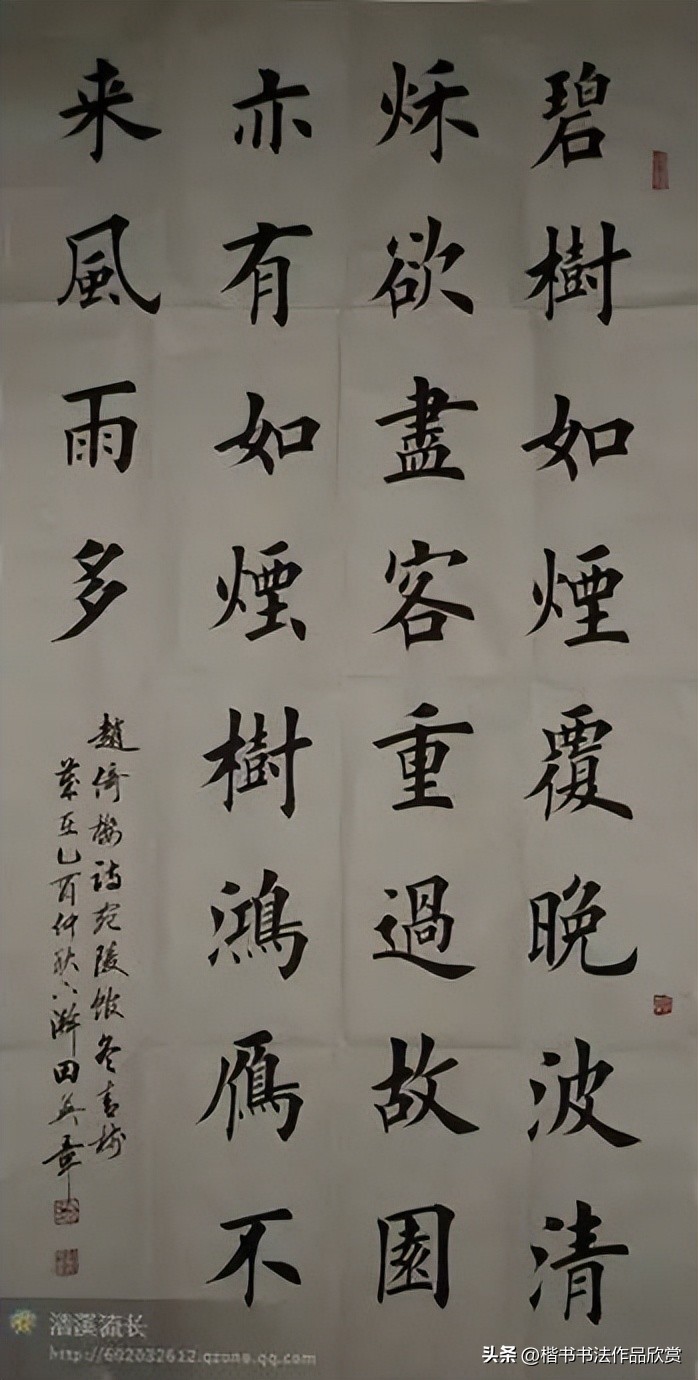 碧樹如煙覆晚波清
秌欲盡客重過故園
亦有如煙樹鴻鴈不
来風雨多
趙倚樓詩宛陵館冬青樹
歲在乙酉仲秋澣田英章
溪流长
http://602032612.qzone.qq.com
头条 @楷书书法作品欣赏